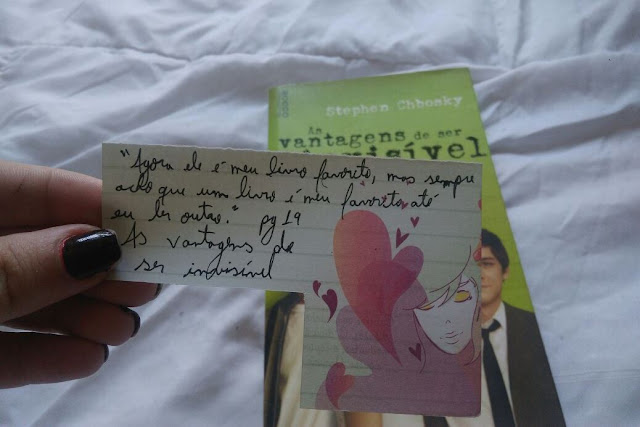 Stephen Chbosky
As
vantagens de ser
visível
"Agora ele é meu livro favorito, mas sempre
acho que um livro é meu favorito até
eu ler outro." pg 19
As vantagens de
ser invisível